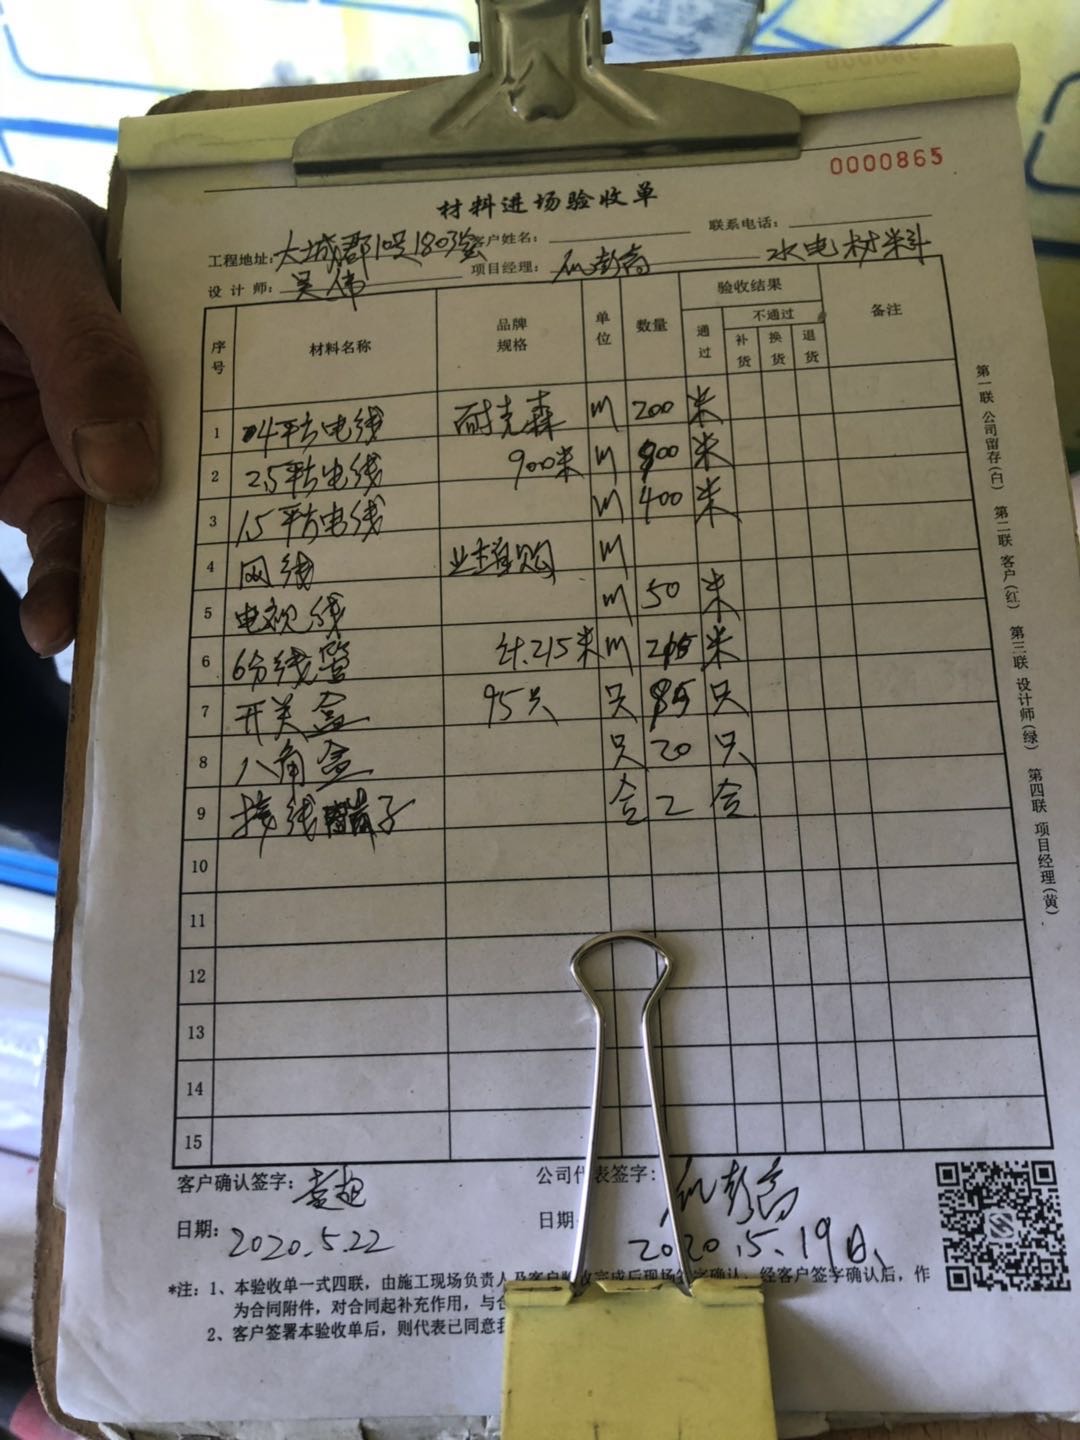 0000865
材料进场验收单
工程地址:大城郡10号1803室 客户姓名: 联系电话:
设计师:吴伟 项目经理: 彭高 水电材料
序号 材料名称 品牌规格 单位 数量 验收结果 备注
通过 不通过
补货 换货 退货
1 4平方电线 耐克森 m 200 米
2 2.5平方电线 900米 m 900 米
3 1.5平方电线 m 400 米
4 网线 业主自购 m
5 电视线 m 50 米
6 6分线管 计.215米 m 215 米
7 开关盒 95只 只 95 只
8 八角盒 只 20 只
9 接线端子 合 2 合
10
11
12
13
14
15
第一联 公司留存(白) 第二联 客户(红) 第三联 设计师(绿) 第四联 项目经理(黄)
客户确认签字: 公司代表签字: 彭高
日期: 2020.5.22 日期 2020.5.19日
*注: 1、本验收单一式四联,由施工现场负责人及客户验收完成后现场签字确认,经客户签字确认后,作
为合同附件,对合同起补充作用,与合
2、客户签署本验收单后,则代表已同意我